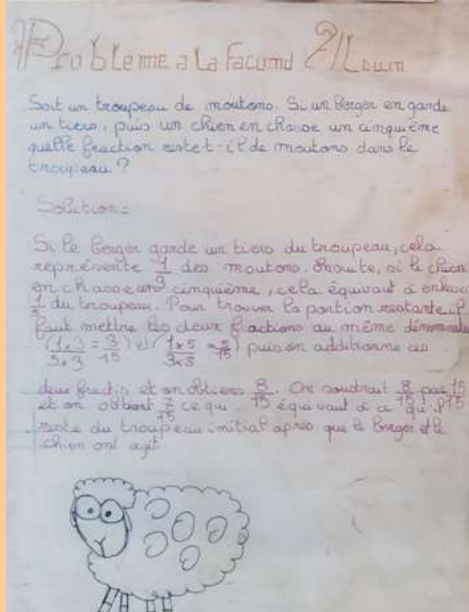 Probleme a la facund Alcuin
Soit un troupeau de moutons. Si un berger en garde
un tiers, puis un chien en chasse un cinquième
quelle fraction reste t-il de moutons dans le
troupeau ?
Solution =
Si le berger garde un tiers du troupeau, cela
représente 1/3 des moutons. Ensuite, si le chien
en chasse un cinquième, cela équivaut à enlever
1/5 du troupeau. Pour trouver la portion restante il
faut mettre les deux fractions au même dénominateur
(1x3/5x3 = 3/15) et (1x5/3x5 = 5/15) puis on additionne ces
deux fractio et on obtiens 8/15. On soustrait 8/15 par 15/15
et on obtient 7/15 ce qui équivaut à ce qu'il
reste du troupeau initial après que le berger et le
chien ont agit